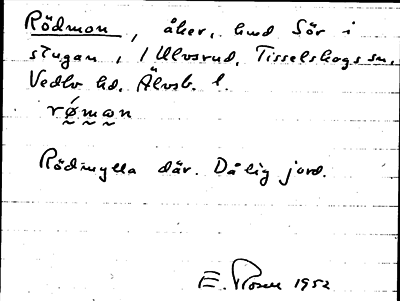 Rödmon, åker, hmd Sör i
stugan, 1 Ulvsrud, Tisselskogs sn,
Vedbo hd, Älvsb. l.
rǿman
Rödmylla där. Dålig jord.
E. Rosell 1952